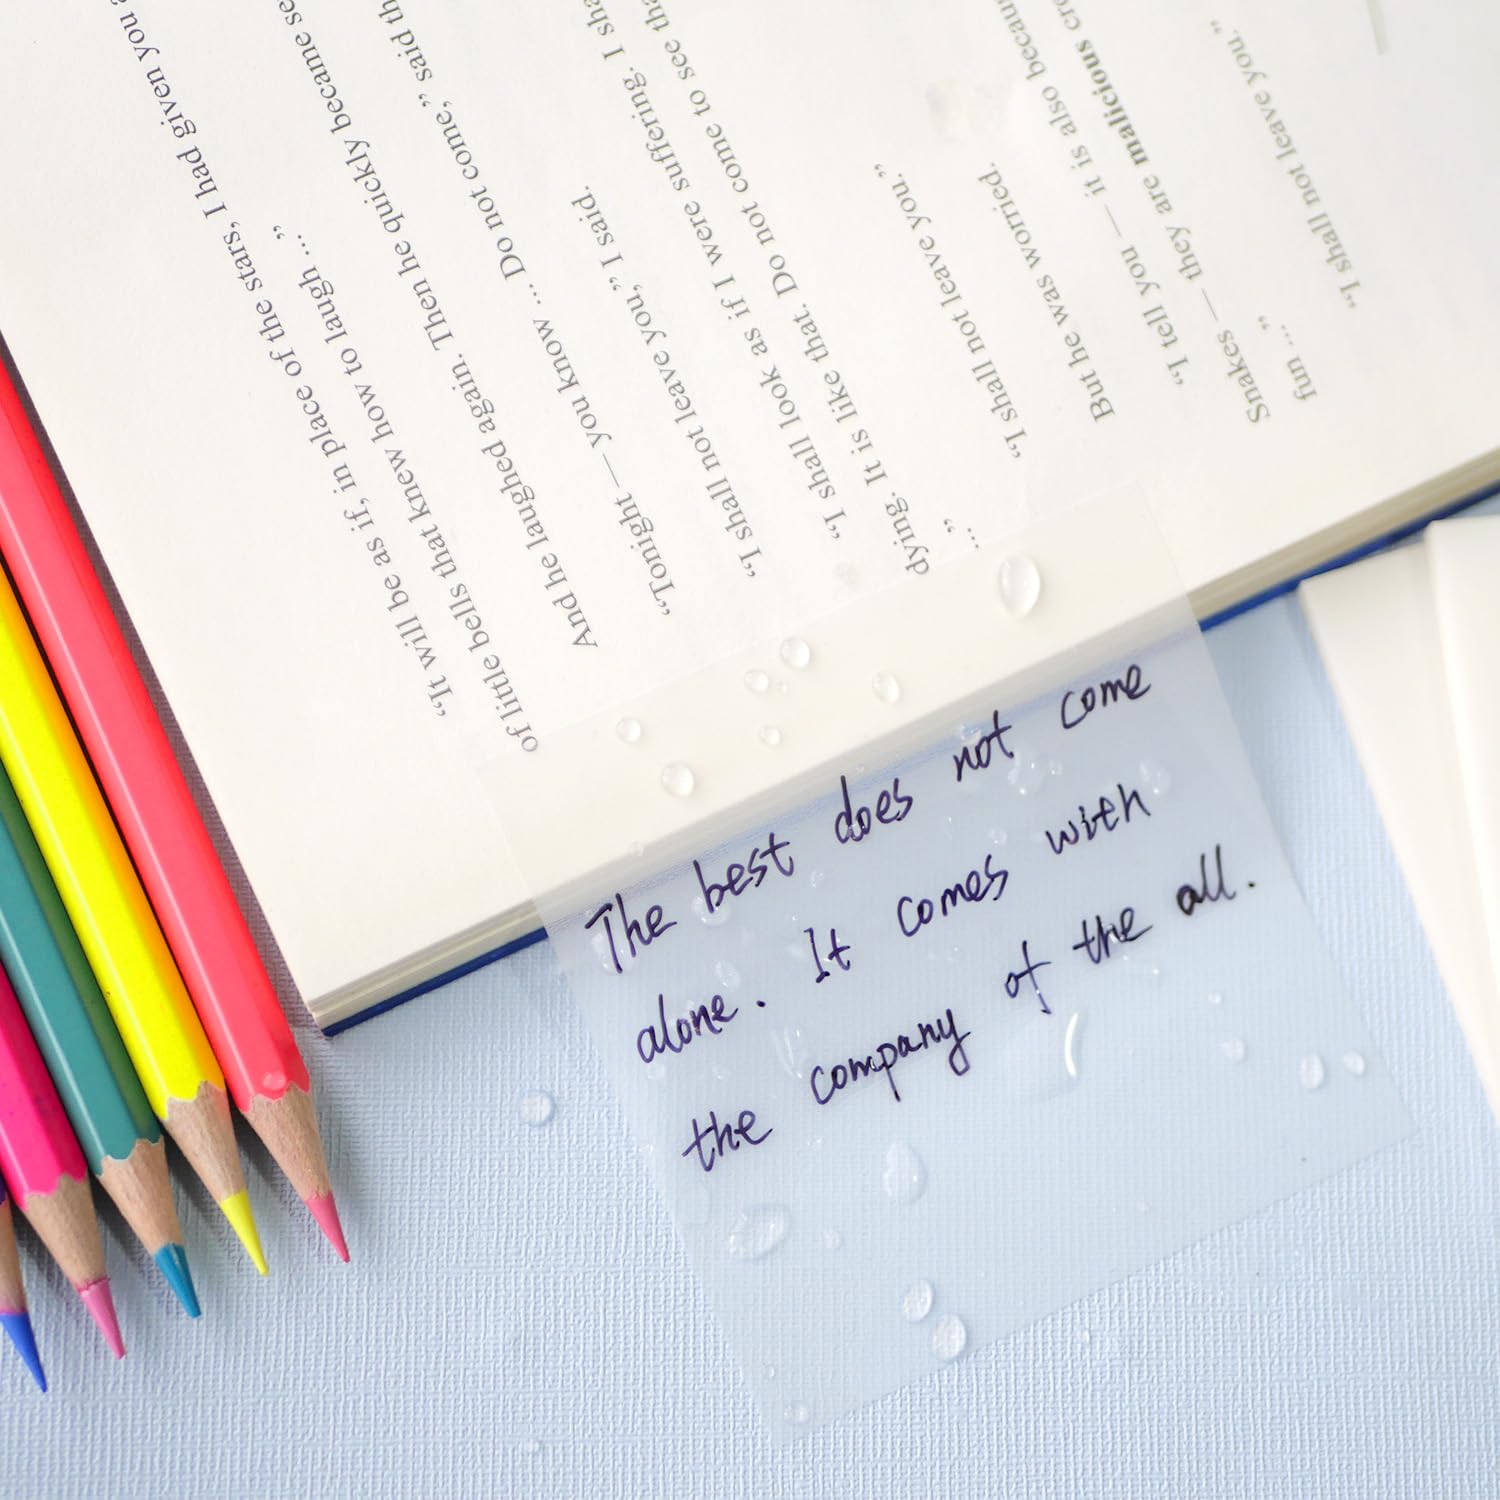 "It will be as if, in place of the stars, I had given you
of little bells that knew how to laugh ..."
And he laughed again. Then he quickly became
"Tonight — you know ... Do not come," said
"I shall not leave you," I said.
"I shall look as if I were suffering. I
dying. It is like that. Do not come to see
..."
"I shall not leave you."
But he was worried.
"I tell you — it is also
Snakes — they are malicious
fun ..."
"I shall not leave you."
The best does not come
alone. It comes with
the company of the all.